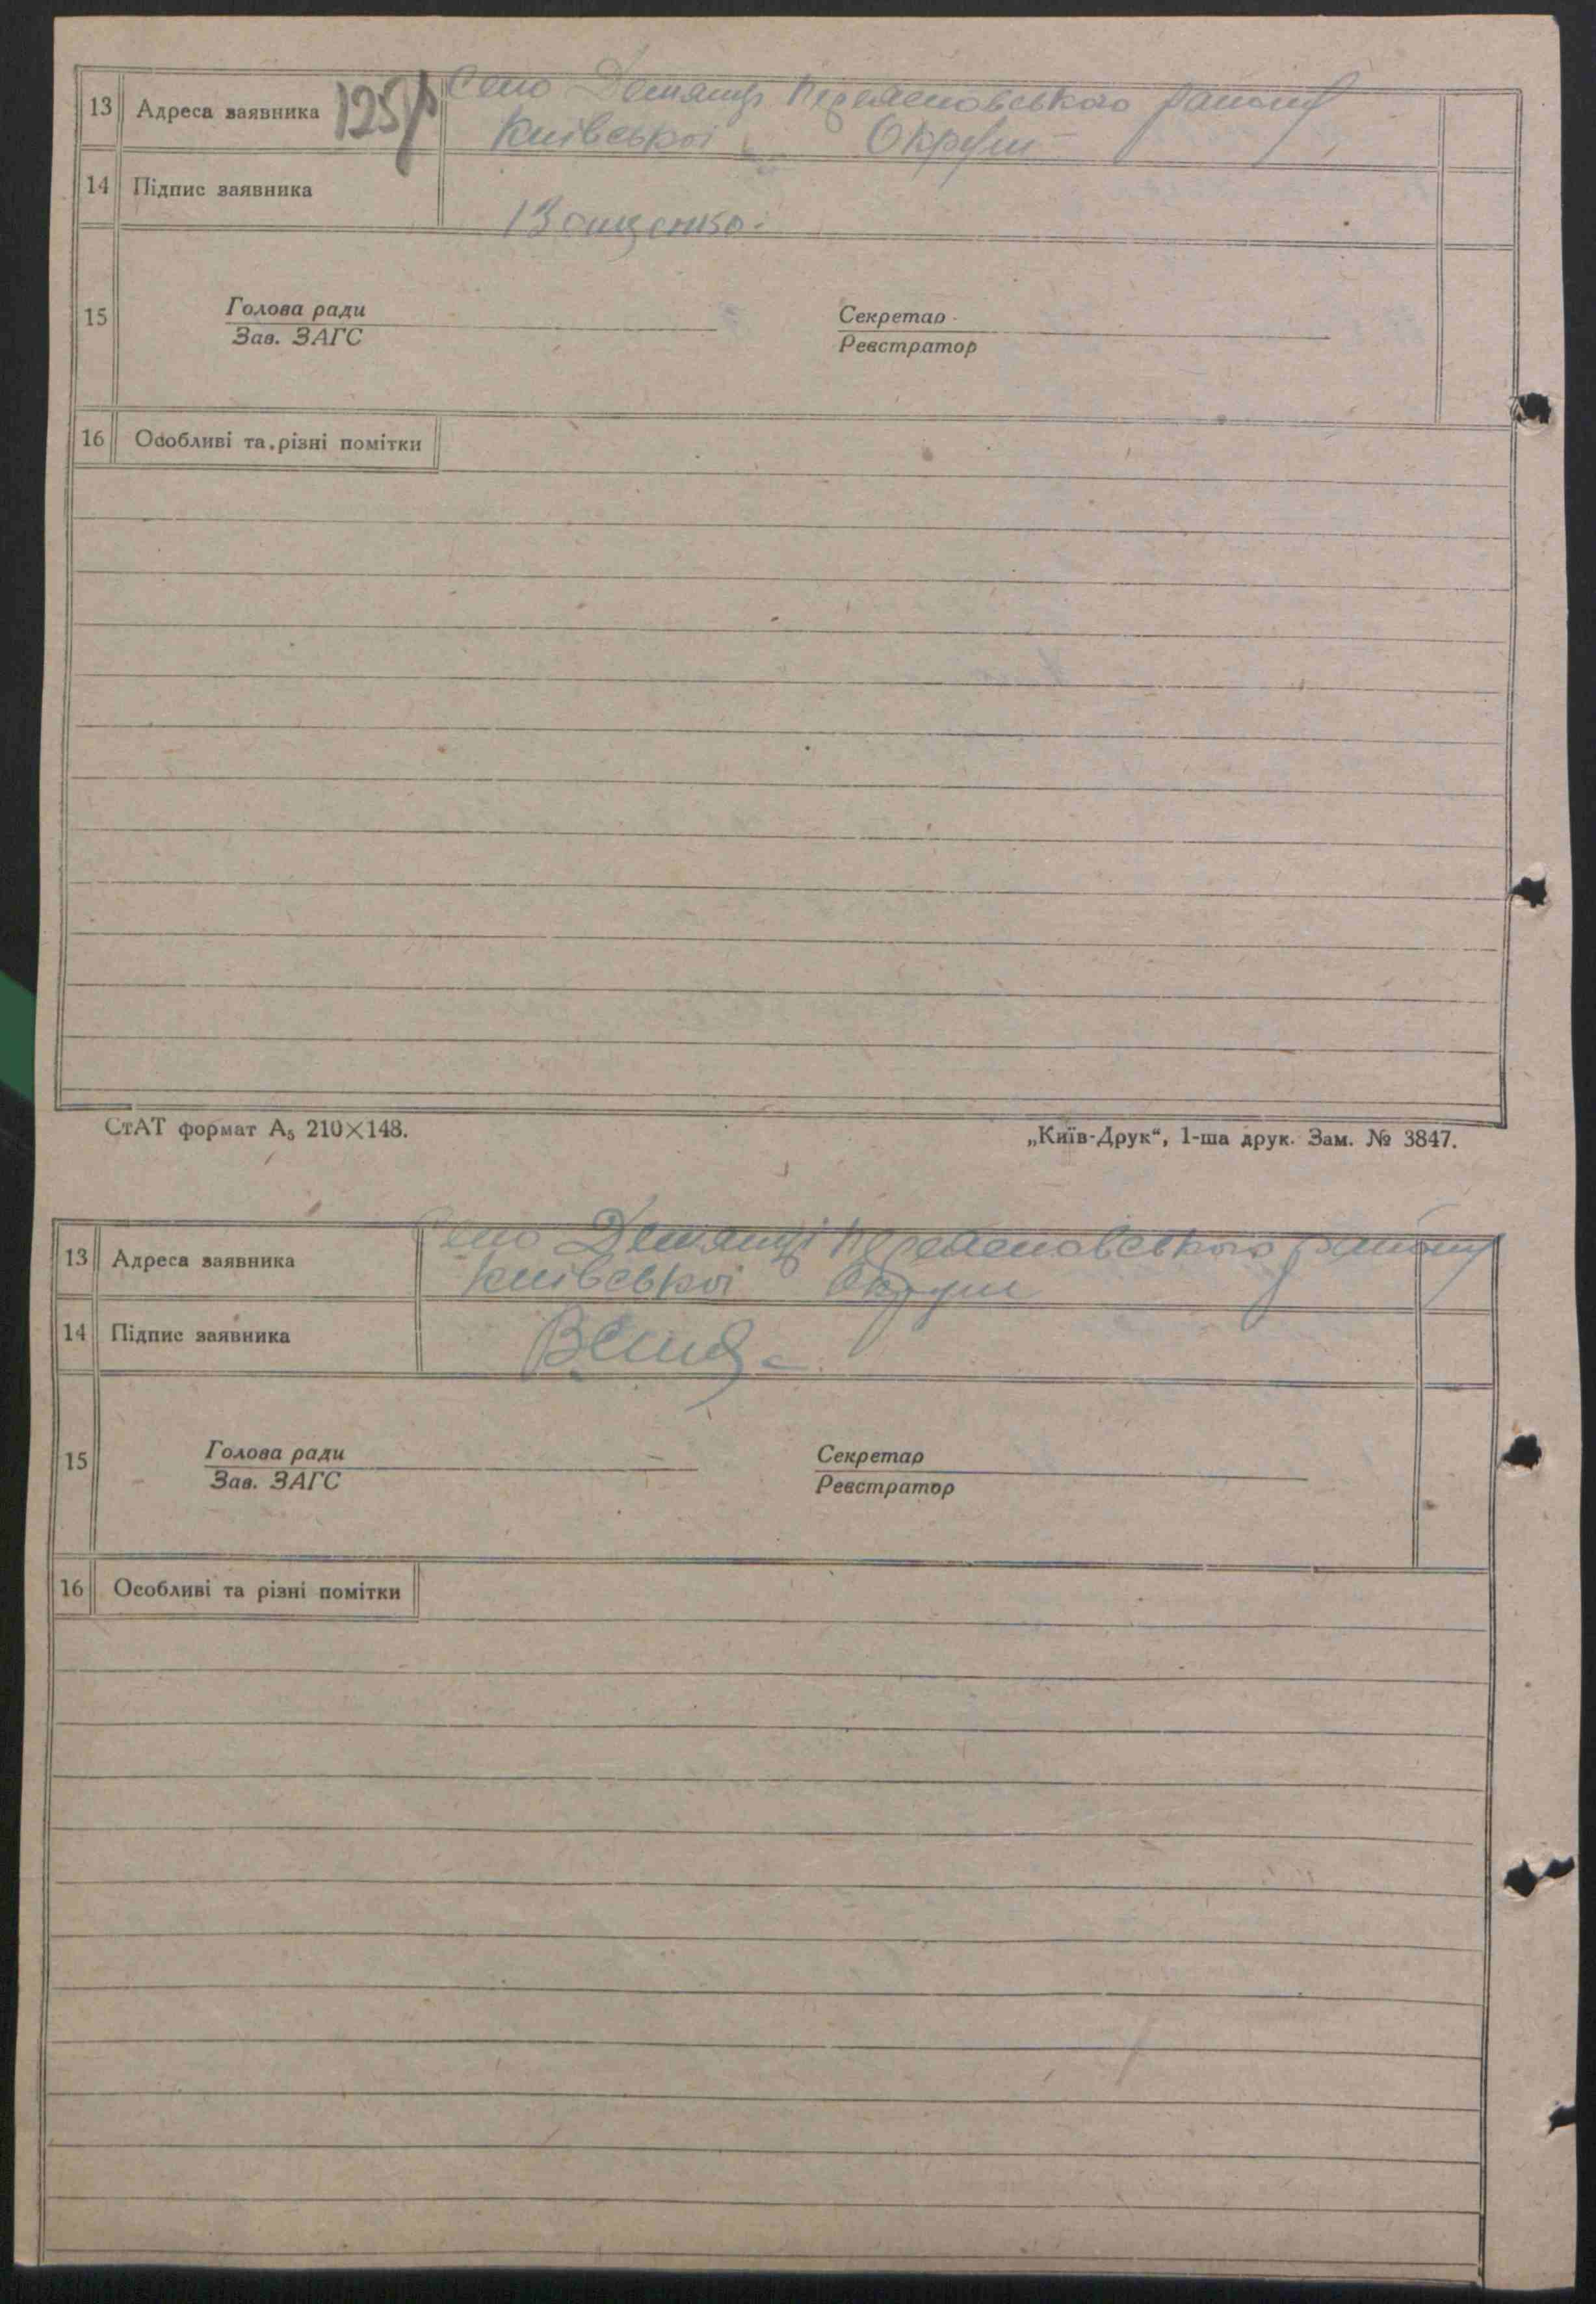 13 Адреса заявника 125 Село Демянці Переяславського району
Київської Округи
14 Підпис заявника
15 Голова ради Секретар
Зав. ЗАГС Реєстратор
16 Особливі та різні помітки
СтАТ формат А₅ 210×148. „Київ-Друк“, 1-ша друк. Зам. № 3847.
13 Адреса заявника Село Демянці Переяславського району
Київської Округи
14 Підпис заявника
15 Голова ради Секретар
Зав. ЗАГС Реєстратор
16 Особливі та різні помітки